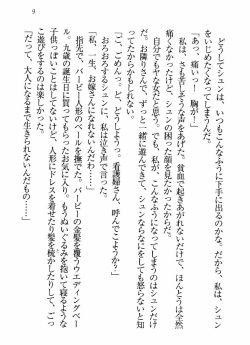 どうしてシュンは、いつもこんなふうに下手に出るのかな。だから、私は、シュン
をいじめたくなってしまうんだ。
「あっ、痛い！　胸が！」
　私は、さも苦しそうな声をあげた。貧血で起きあがれないだけで、ほんとうは全然
痛くなかったけど、シュンの困った顔を見たかったからだ。
　自分でもヤな女の子だと思う。でも、私が、こんなふうになってしまうのはシュンだけ
だ。お隣りさんで、ずっと一緒に遊んできて、シュンならなにをしても怒らないと知
ってたからかもしれない。
「ご、ごめんっ。ど、どうしよう。看護婦さん、呼んでこようか？」
　おろおろするシュンに、私は泣き声で言った。
「私、一生、お嫁さんになれないんだわ……」
　指先で、バービー人形のベールを撫でた。バービーの金髪を覆うウエディングベー
ル。九歳の誕生日に買ってもらった私のお気に入り。もうぬいぐるみを抱いて寝るような
子供っぽいことはしてないけど、人形にドレスを着せたり髪を梳かしたりして、ごっ
こ遊びをするのは楽しかった。
「だって、大人になるまで生きられないんだもの……」
9